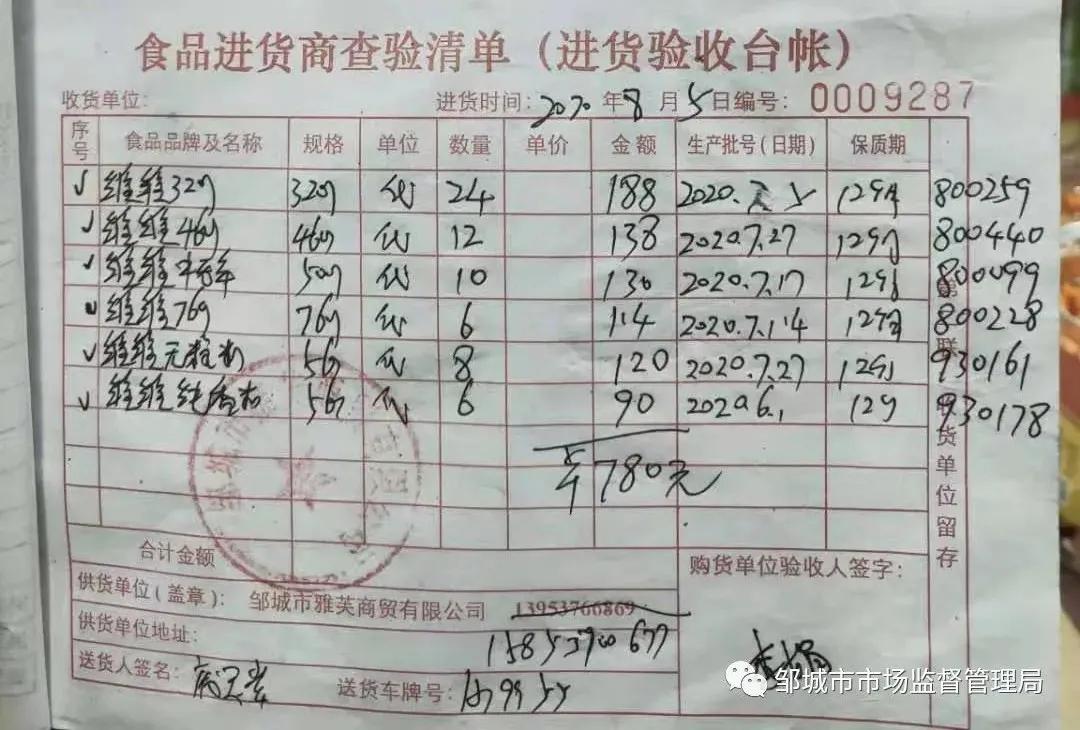 食品进货商查验清单（进货验收台帐）
收货单位： 进货时间：2020年8月5日编号：0009287
序号 食品品牌及名称 规格 单位 数量 单价 金额 生产批号(日期) 保质期
√ 维维320g 320g 袋 24 188 2020. 12个月 800259
√ 维维460g 460g 袋 12 138 2020.7.27 12个月 800440
√ 维维 500g 袋 10 130 2020.7.17 12个月 800099
√ 维维760g 760g 袋 6 114 2020.7.14 12个月 800228
√ 维维无糖 560g 袋 8 120 2020.7.27 12个月 930161
√ 维维纯 560g 袋 6 90 2020.6.1 12个月 930178
780元
合计金额
购货单位验收人签字：
供货单位(盖章)： 邹城市雅芙商贸有限公司 13953766869
供货单位地址： 15853700677
送货人签名： 送货车牌号：
联
货单位留存
邹城市市场监督管理局